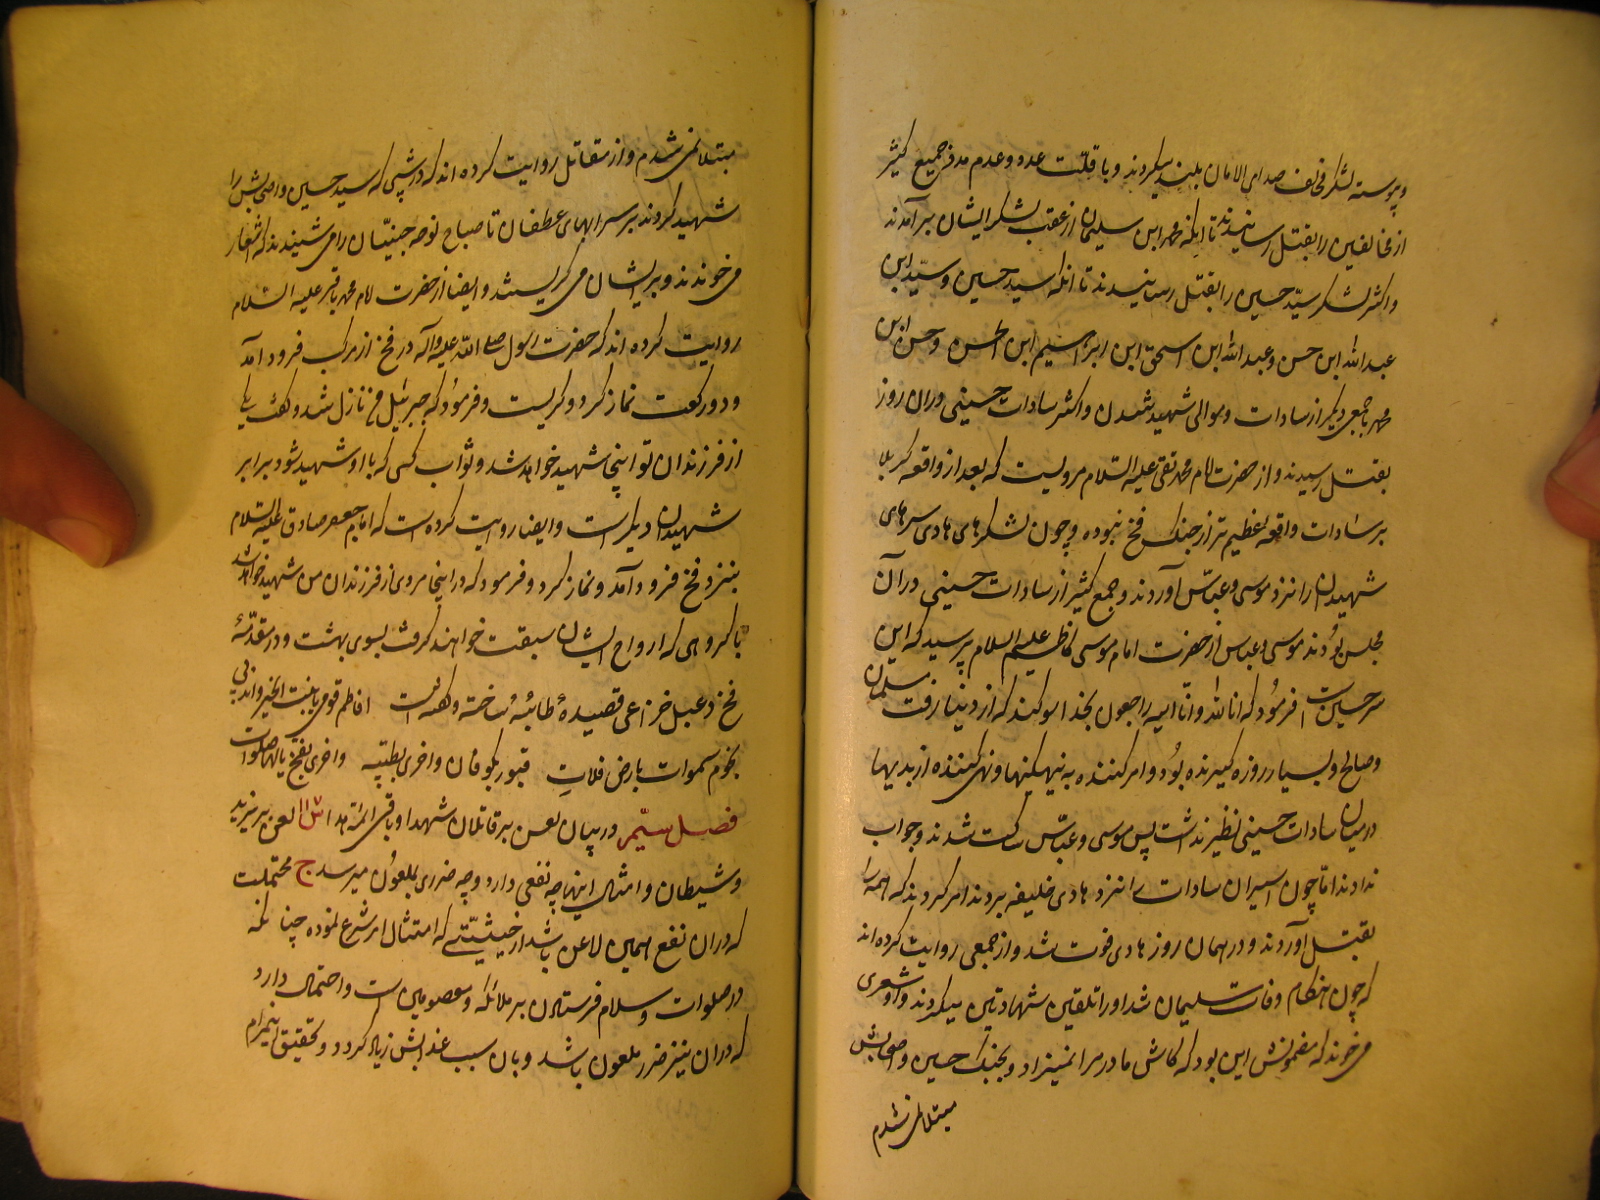 و پیوسته لشکر مخالف صدای الامان بلند میکردند و با قلّت عدد و عدم مدد جمیع کثیر
از مخالفین را بقتل رسانیدند تا آنکه محمد ابن سلیمان از عقب لشکر ایشان برآمدند
و اکثر لشکر سیّد حسین را بقتل رسانیدند تا آنکه سید حسین و سیّد ابن
عبد الله ابن حسن و عبد الله ابن اسحق ابن ابراهیم ابن الحسن و حسن ابن
محمد با جمعی دیگر از سادات و موالی شهید شدن و اکثر سادات حسینی دران روز
بقتل رسیدند و از حضرت امام محمد تقی علیه السلام مرویست که بعد از واقعه کربلا
بر سادات واقعه عظیم تر از جنگ فخ نبوده و چون لشکرهای هادی سرهای
شهیدان را نزد موسی و عباس آوردند و جمع کثیر از سادات حسینی در آن
مجلس بودند موسی و عباس از حضرت امام موسی کاظم علیه السلام پرسید که این
سر حسین است فرمود که انا لله و انّا الیه راجعون بخدا سوکند که از دنیا رفت مسلمان
و صالح و بسیار روزه گیرنده بود و امر کننده به نیکیها و نهی کننده از بدیها
در میان سادات حسینی نظیر نداشت پس موسی و عباس ساکت شدند و جواب
ندادند اما چون اسیران سادات را نزد هادی خلیفه بردند امر کردند که همه را
بقتل آوردند و در همان روز هادی فوت شد و از جمعی روایت کرده اند
که چون هنکام وفات سلیمان شد او را تلقین شهادتین میکردند و او شعری
می خوند که مضمونش این بود که کاش مادر مرا نمیزاد و بجنک حسین و اصحابش
مبتلا نمی شدم
مبتلا نمی شدم و از مقاتل روایت کرده اند که در شبی که سید حسین و اصحابش را
شهید کردند بر سر ابهای عطفان تا صباح نوحه جنیّان را می شنیدند که اشعار
می خوندند و بر ایشان می کریستند و ایضا از حضرت امام محمد باقر علیه السلام
روایت کرده اند که حضرت رسول صلی الله علیه و آله در فخ از مرکب فرود آمد
و دو رکعت نماز کرد و کریست و فرمود که جبرئیل نازل شد و کفت یکی
از فرزندان تو اینجا شهید خواهد شد و ثواب کسی که با او شهید شود برابر
شهیدان دیگر است و ایضا روایت کرده است که امام جعفر صادق علیه السلام
بنزد فخ فرود آمد و نماز کرد و فرمود که در اینجا مردی از فرزندان من شهید خواهد شد
با کروهی که ارواح ایشان سبقت خواهند کرفت بسوی بهشت و در مقدمهٔ
فخ دعبل خزاعی قصیدهٔ تائیه ساخته و کفته است افاطم قومی یا بنت الخیر و اندبی
نجوم سموات بارض فلات قبور بکوفان و اخری بطیبه و اخری بفخ یالها صلوات
فصل سیّم در بیان لعن بر قاتلان شهدا و باقی ائمه هدا س لعن بر یزید
و شیطان و امثال اینها چه نفعی دارد و چه ضرری بملعون میرسد ج محتملست
که دران نفع همین لاعن باشد از حیثیّتی که امتثال امر شرع نموده چنانکه
در صلوات و سلام فرستادن بر ملائکه و معصومین است و احتمال دارد
که دران نیز ضرر ملعون باشد و بان سبب عذابش زیاد کردد و تحقیق اینمرام